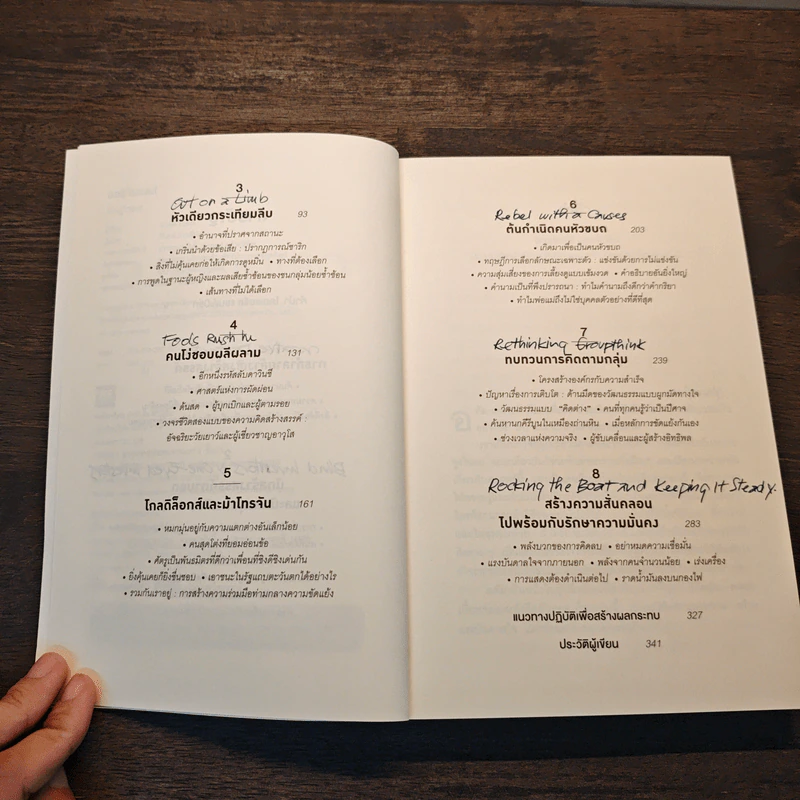 3
Out on a Limb
หัวเดียวกระเทียมลีบ 93
• อำนาจที่ปราศจากสถานะ
• เกริ่นนำด้วยข้อเสีย : ปรากฏการณ์ซาริก
• สิ่งที่ไม่คุ้นเคยก่อให้เกิดการดูหมิ่น • ทางที่ต้องเลือก
• การพูดในฐานะผู้หญิงและผลเสียซ้ำซ้อนของชนกลุ่มน้อยซ้ำซ้อน
• เส้นทางที่ไม่ได้เลือก
4
Fools Rush In
คนโง่ชอบผลีผลาม 131
• อีกหนึ่งรหัสลับดาวินชี
• ศาสตร์แห่งการผัดผ่อน
• ด้นสด • ผู้บุกเบิกและผู้ตามรอย
• วงจรชีวิตสองแบบของความคิดสร้างสรรค์ :
อัจฉริยะวัยเยาว์และผู้เชี่ยวชาญอาวุโส
5
โกลดิล็อกส์และม้าโทรจัน 161
• หมกมุ่นอยู่กับความแตกต่างอันเล็กน้อย
• คนสุดโต่งที่ยอมอ่อนข้อ
• ศัตรูเป็นพันธมิตรที่ดีกว่าเพื่อนที่ชิงดีชิงเด่นกัน
• ยิ่งคุ้นเคยก็ยิ่งชื่นชอบ • เอาชนะในรัฐแถบตะวันตกได้อย่างไร
• รวมกันเราอยู่ : การสร้างความร่วมมือท่ามกลางความขัดแย้ง
6
Rebel with a Causes
ต้นกำเนิดคนหัวขบถ 203
• เกิดมาเพื่อเป็นคนหัวขบถ
• ทฤษฎีการเลือกลักษณะเฉพาะตัว : แข่งขันด้วยการไม่แข่งขัน
• ความสุ่มเสี่ยงของการเลี้ยงดูแบบเข้มงวด • คำอธิบายอันยิ่งใหญ่
• คำนามเป็นที่พึงปรารถนา : ทำไมคำนามถึงดีกว่าคำกริยา
• ทำไมพ่อแม่ถึงไม่ใช่บุคคลตัวอย่างที่ดีที่สุด
7
Rethinking Groupthink
ทบทวนการคิดตามกลุ่ม 239
• โครงสร้างองค์กรกับความสำเร็จ
• ปัญหาเรื่องการเติบโต : ด้านมืดของวัฒนธรรมแบบผูกมัดทางใจ
• วัฒนธรรมแบบ “คิดต่าง” • คนที่ทุกคนรู้ว่าเป็นปีศาจ
• ค้นหานกคีรีบูนในเหมืองถ่านหิน • เมื่อหลักการขัดแย้งกันเอง
• ช่วงเวลาแห่งความจริง • ผู้ขับเคลื่อนและผู้สร้างอิทธิพล
8
Rocking the Boat and Keeping It Steady.
สร้างความสั่นคลอน
ไปพร้อมกับรักษาความมั่นคง 283
• พลังบวกของการคิดลบ • อย่าหมดความเชื่อมั่น
• แรงบันดาลใจจากภายนอก • พลังจากคนจำนวนน้อย • เร่งเครื่อง
• การแสดงต้องดำเนินต่อไป • ราดน้ำมันลงบนกองไฟ
แนวทางปฏิบัติเพื่อสร้างผลกระทบ 327
ประวัติผู้เขียน 341